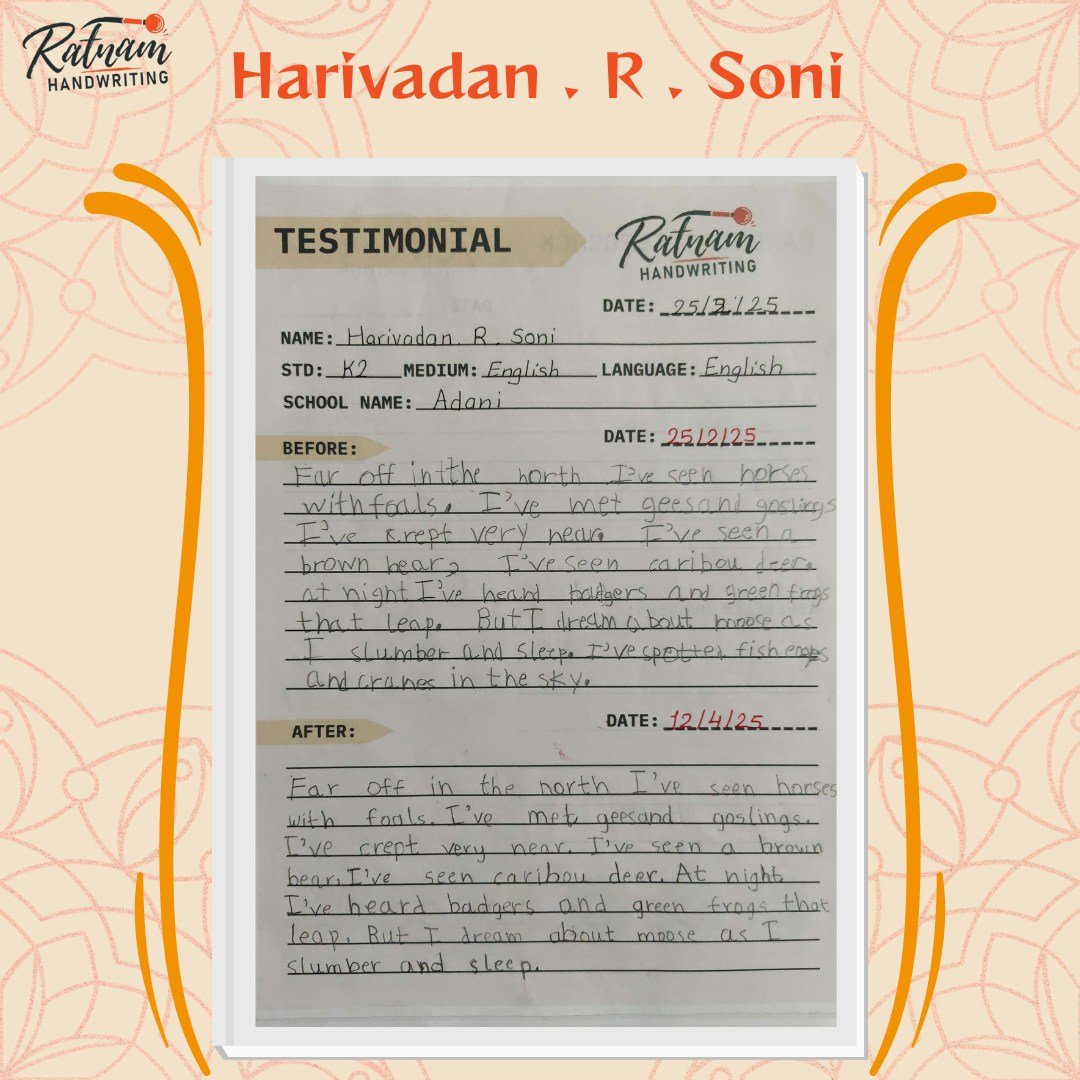 Ratnam
HANDWRITING
Harivadan . R . Soni
TESTIMONIAL
Ratnam
HANDWRITING
DATE:
NAME: Harivadan R. Soni
STD: K2 MEDIUM: English LANGUAGE: English
SCHOOL NAME: Adani
DATE: 25/2/25
BEFORE:
Far off in the north I've seen horses
with foals. I've met geesand goslings
I've crept very near. I've seen a
brown bear, I've seen caribou deer.
at night I've heard badgers and green frogs
that leap. But I dream about moose as
I slumber and sleep. I've spotted fish
and cranes in the sky.
DATE: 12/4/25
AFTER:
Far off in the north I've seen horses
with foals. I've met geesand goslings.
I've crept very near. I've seen a brown
bear, I've seen caribou deer. At night
I've heard badgers and green frogs that
leap. But I dream about moose as I
slumber and sleep.